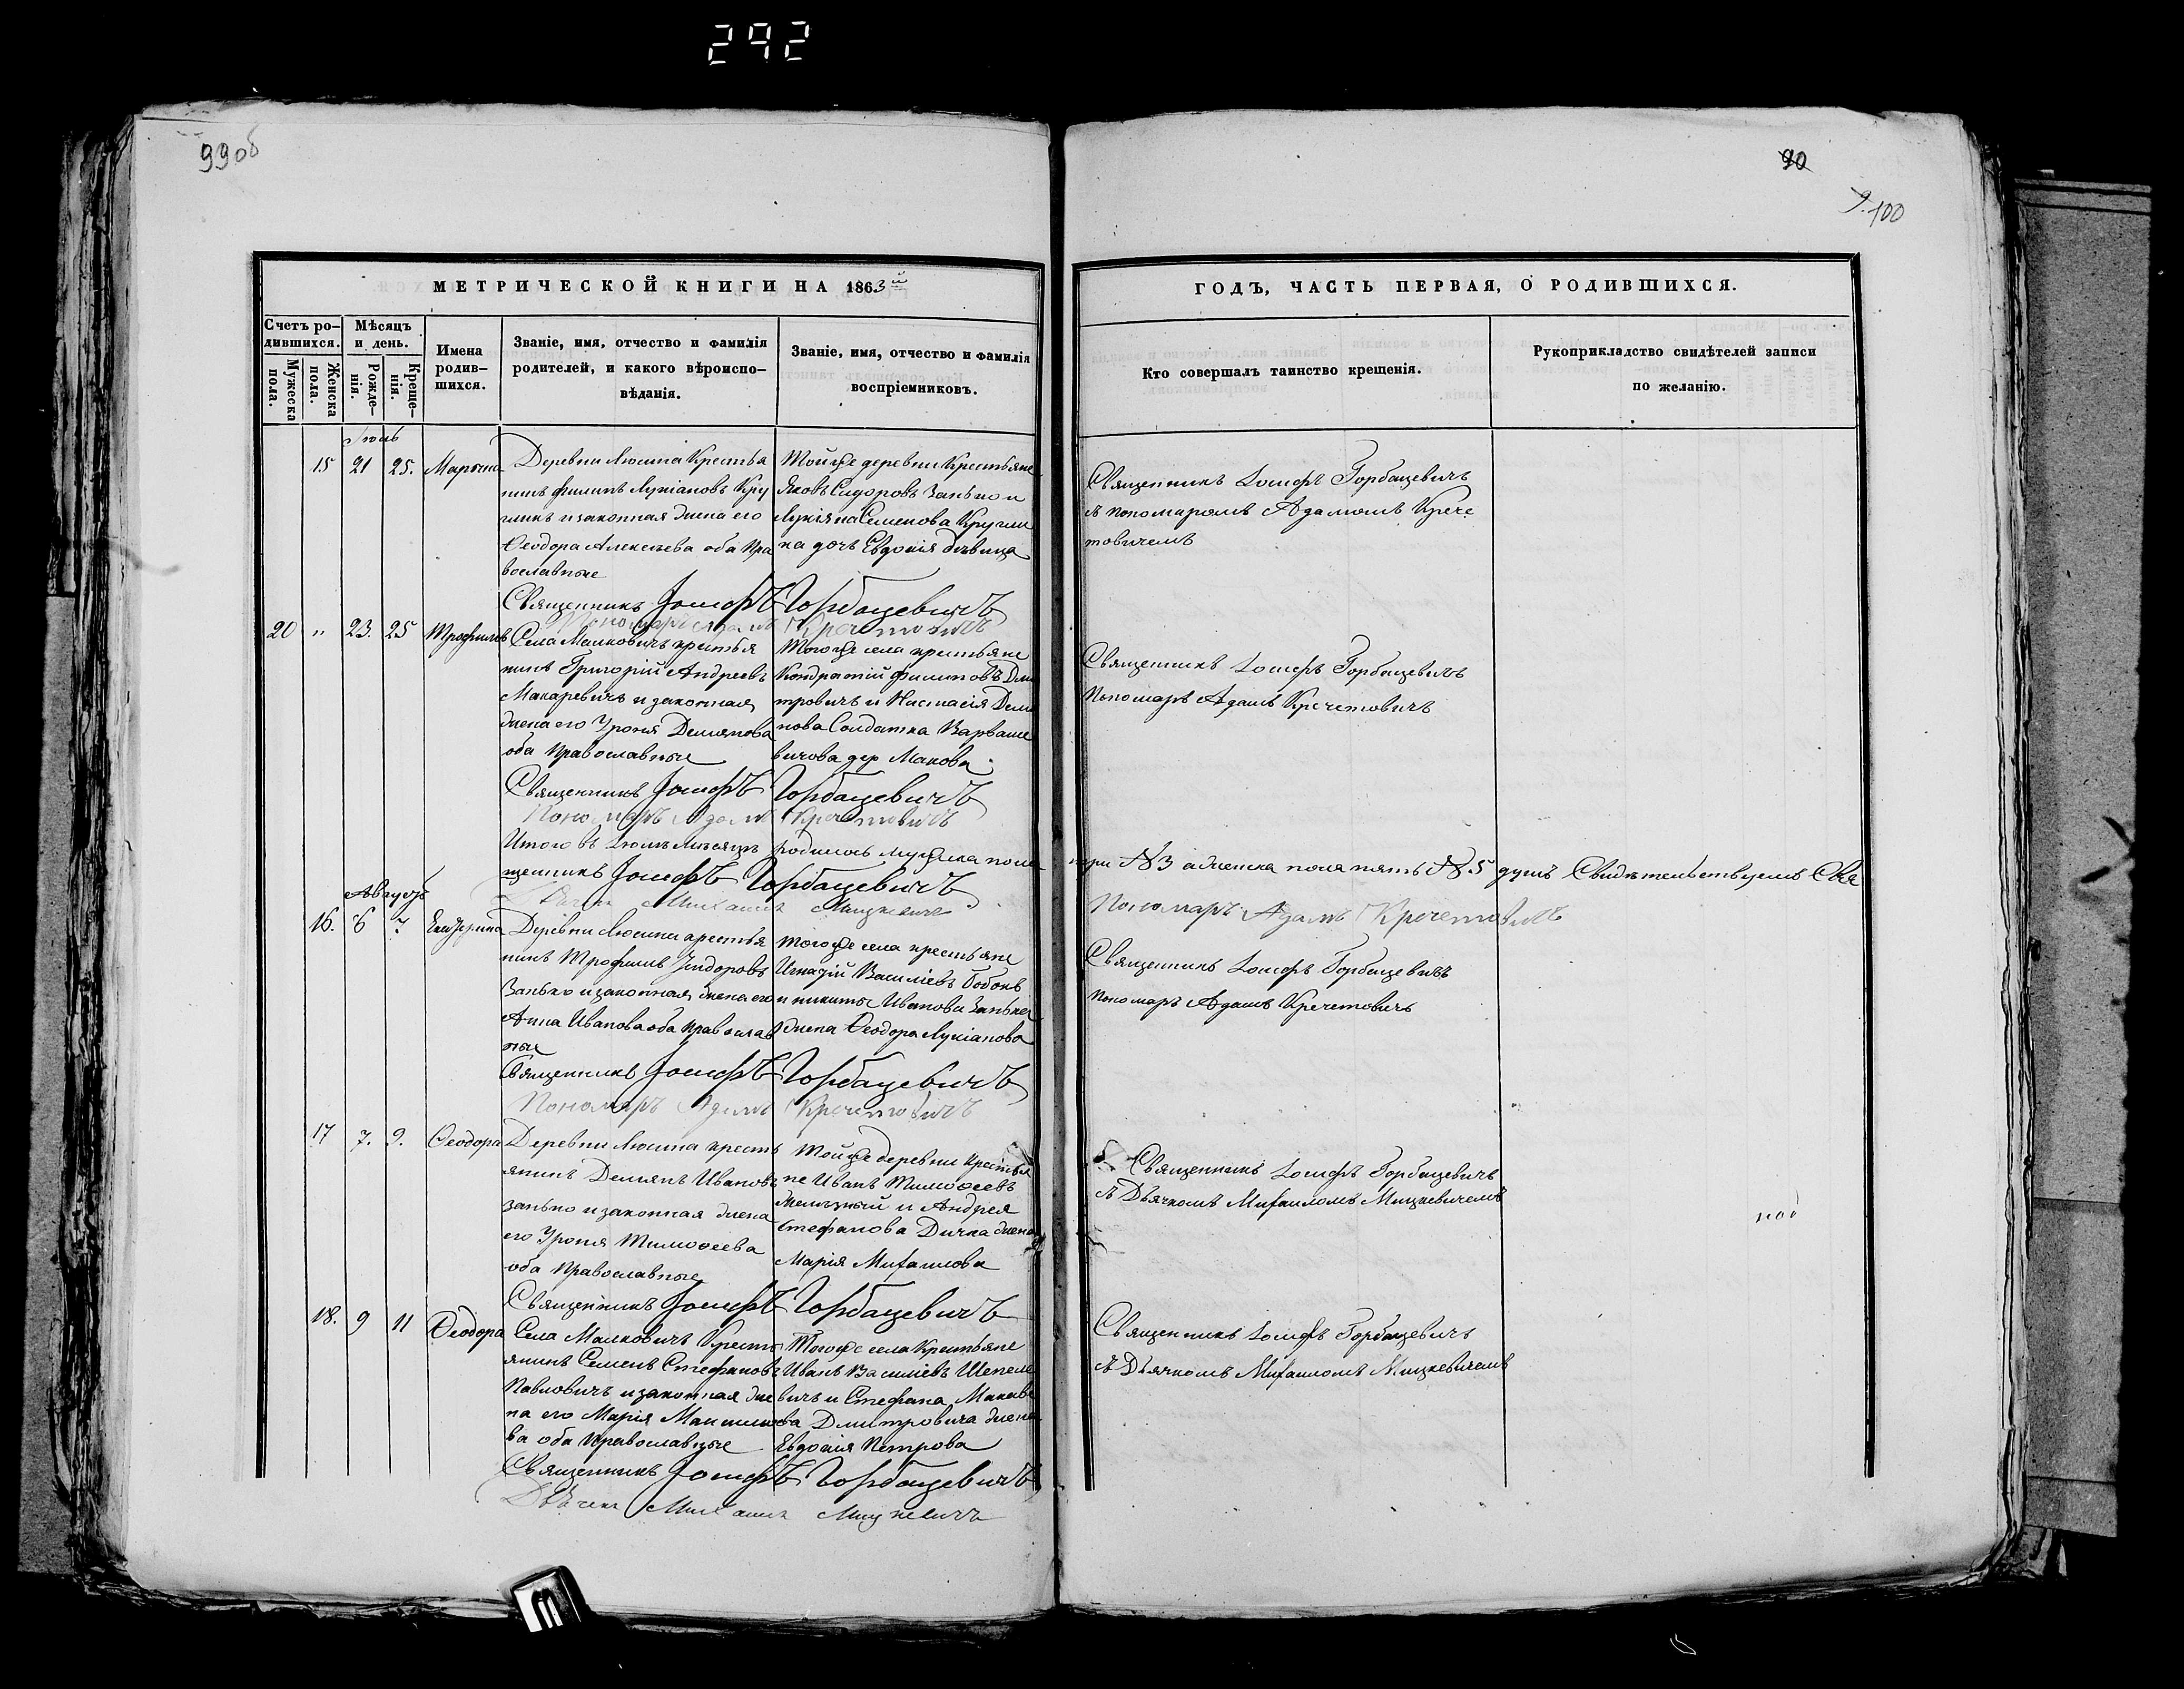 292
99об
90
9.
100
МЕТРИЧЕСКОЙ КНИГИ НА 1863й
ГОДЪ, ЧАСТЬ ПЕРВАЯ, О РОДИВШИХСЯ.
Счетъ ро-
дившихся.
Мужеска
пола.
Женска
пола.
Мѣсяцъ
и день.
Рожде-
нія.
Креще-
нія.
Имена
родив-
шихся.
Званіе, имя, отчество и фамилія
родителей, и какого вѣроиспо-
вѣданія.
Званіе, имя, отчество и фамилія
воспріемниковъ.
Кто совершалъ таинство крещенія.
Рукоприкладство свидѣтелей записи
по желанію.
15 21 25. Марьяна
Деревни Люсина Крестья
нинъ Филипъ Лукіановъ Кру
гликъ и законная жена его
Ѳеодора Алексѣева оба Пра
вославные
Тойже деревни Крестьяне
Яковъ Сидоровъ Занько и
Лукіяна Семенова Кругли
ка дочь Евдокія дѣвица
Священникъ Іосифъ Горбацевичъ
съ пономаромъ Адамомъ Крече
товичемъ
Священникъ Іосифъ Горбацевичъ
Пономаръ Адамъ Кречетовичъ
20 " 23. 25 Трофимъ
Села Малковичъ крестья
нинъ Григорій Андреевъ
Макаревичъ и законная
жена его Уроня Демянова
оба Православные
Тогоже села крестьяне
Кондратій Филиповъ Дми
тровичъ и Настасія Деми
нова Солдатка Варваше
вичова дер Макова
Священникъ Іосифъ Горбацевичъ
Пономаръ Адамъ Кречетовичъ
Священникъ Іосифъ Горбацевичъ
Пономаръ Адамъ Кречетовичъ
Итого въ Іюлѣ мѣсяцѣ родилось мужеска пола три № 3 а женска пола пять № 5 душъ Свидѣтельствуемъ Свя
щенникъ Іосифъ Горбацевичъ
Дьячекъ Михаилъ Мицкевичъ
Пономаръ Адамъ Кречетовичъ
Августъ
16. 6 7 Екатерина
Деревни Люсина крестья
нинъ Трофимъ Исидоровъ
Занько и законная жена его
Анна Иванова оба Православ
ные
Тогоже села крестьяне
Игнатій Василіевъ Бобокъ
и никиты Иванова Занька
жена Ѳеодора Лукіанова
Священникъ Іосифъ Горбацевичъ
Пономаръ Адамъ Кречетовичъ
Священникъ Іосифъ Горбацевичъ
Пономаръ Адамъ Кречетовичъ
17 7. 9. Ѳеодора
Деревни Люсина кресть
янинъ Демянъ Ивановъ
Занько и законная жена
его Уроня Тимоѳеева
оба Православные
Тойже деревни Крестья
не Иванъ Тимоѳеевъ
и Андрея
Стефанова Дичка жена
Марія Михаилова
Священникъ Іосифъ Горбацевичъ
съ Дьячкомъ Михаиломъ Мицкевичемъ
Священникъ Іосифъ Горбацевичъ
18. 9 11 Ѳеодора
Села Малковичъ Кресть
янинъ Семенъ Стефановъ
Павловичъ и законная же
на его Марія Максимо
ва оба Православные
Тогоже села Крестьяне
Иванъ Василіевъ Шепеле
вичъ и Стефана
Дмитровича жена
Евдокія Петрова
Священникъ Іосифъ Горбацевичъ
съ Дьячкомъ Михаиломъ Мицкевичемъ
Священникъ Іосифъ Горбацевичъ
Дьячекъ Михаилъ Мицкевичъ